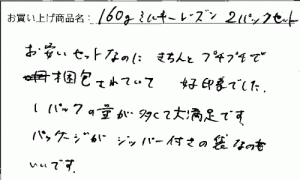 お買い上げ商品名：160gミルキーレーズン 2パックセット
お安いセットなのに きちんと プチプチで
梱包されていて 好印象でした。
1パックの量が多くて大満足です。
パッケージが ジッパー付きの袋なのも
いいです。